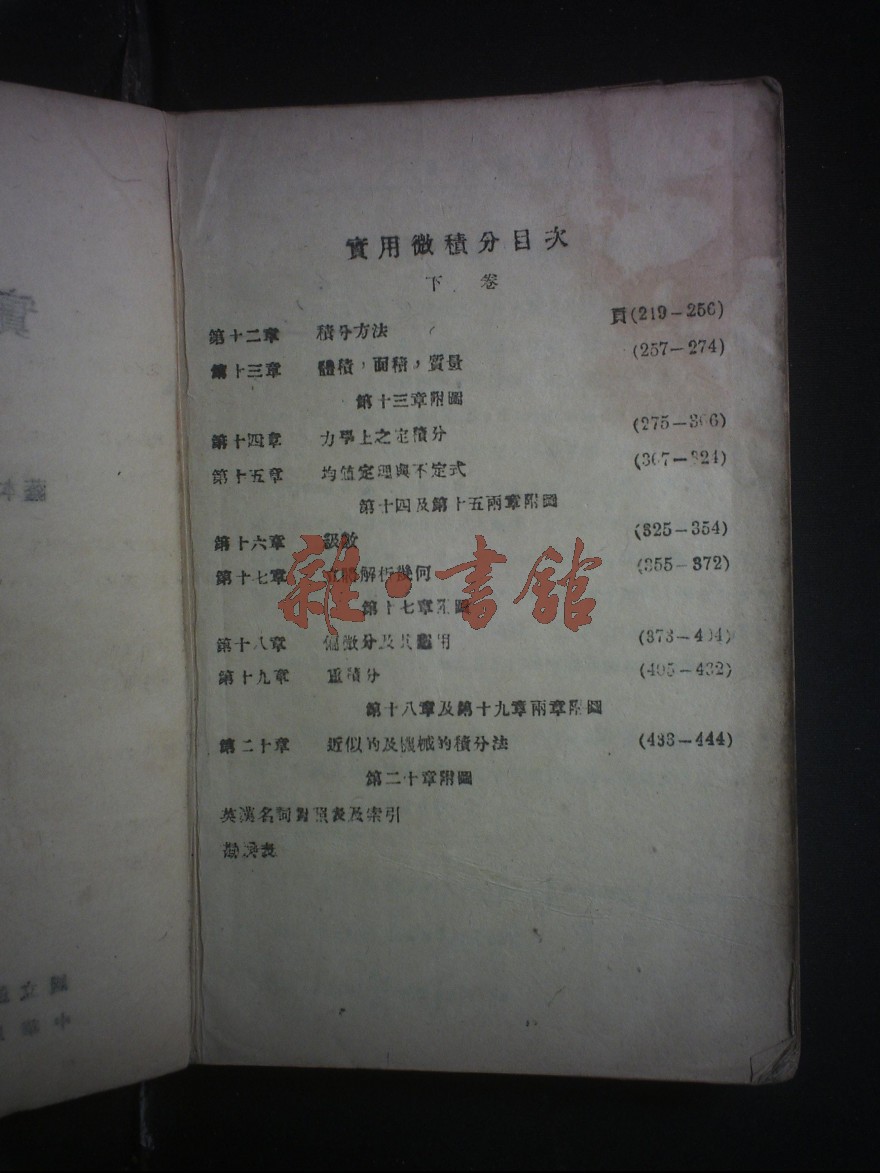 實用微積分目次
下 卷
頁(219-256)
第十二章 積分方法
第十三章 體積，面積，質量 (257-274)
第十三章附圖
第十四章 力學上之定積分 (275-306)
第十五章 均值定理與不定式 (307-324)
第十四及第十五兩章附圖
第十六章 級數 (325-354)
第十七章 解析幾何 (355-372)
第十七章附圖
第十八章 偏微分及其應用 (373-404)
第十九章 重積分 (405-432)
第十八章及第十九章兩章附圖
第二十章 近似的及機械的積分法 (433-444)
第二十章附圖
英漢名詞對照表及索引
勘誤表
雜·書館